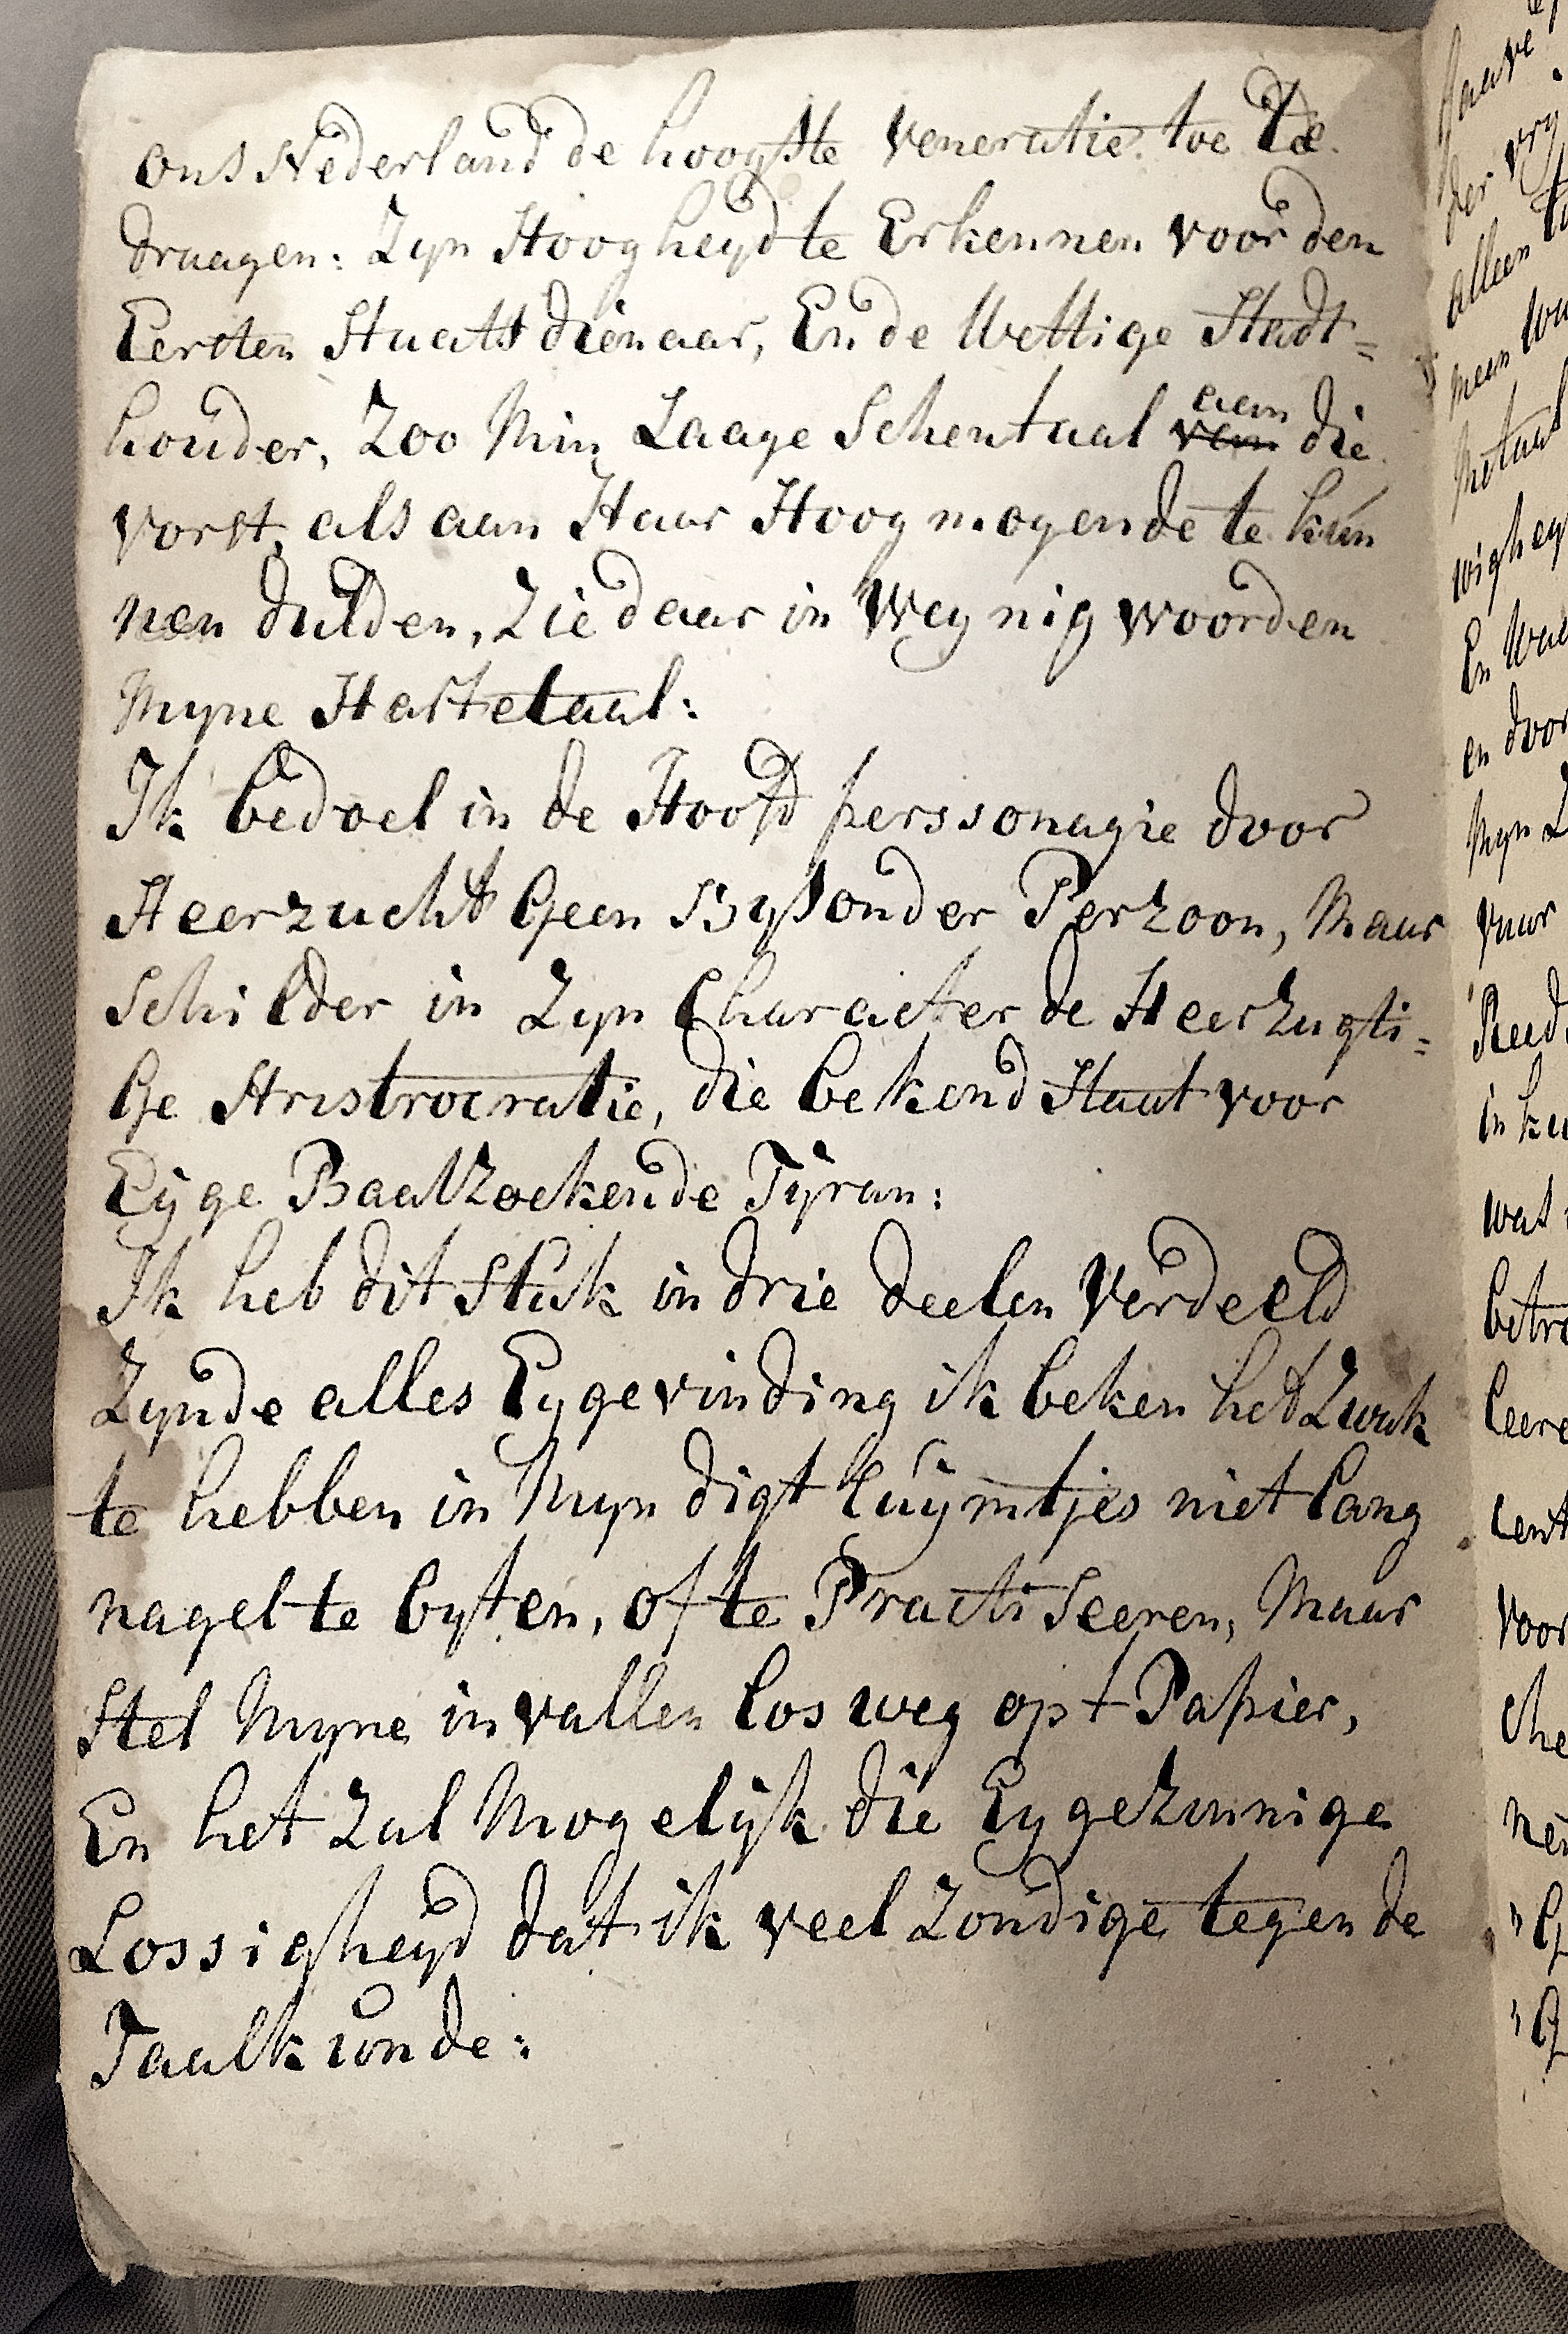 ons Nederland de hoogste veneratie toe te
draagen: Zyn Hoogheyd te Erkennen voor den
Eersten Staats dienaar, En de Wettige Stadt=
houder, Zoo Min Laage Schentaal aan die
vorst, als aan Haar Hoog mogende te kun
nen dulden, Zie daar in Weynig woorden
Myne Hartetaal:
Ik bedoel in de Hoofd perssonagie door
Heerzucht Geen Bysonder Perzoon, Maar
Schilder in Zyn Character de Heerzugti=
Ge Aristrocratie, die bekend Staat voor
Eyge Baatzoekende Tyran:
Ik heb dit Stuk in drie deelen Verdeeld
Zynde alles Eyge vinding ik beken het Zwak
te hebben in Myn digt luymtjes niet lang
nagel te byten, of te Practiseeren, Maar
Stel Myne invallen los weg op t Papier,
En het Zal Mogelyk die Eygezinnige
Lossigheyd dat ik veel Zondige tegen de
Taalkunde:
der vry
alleen
meen
Metaal
En
en door
Myn
vuur
in
wat
voor